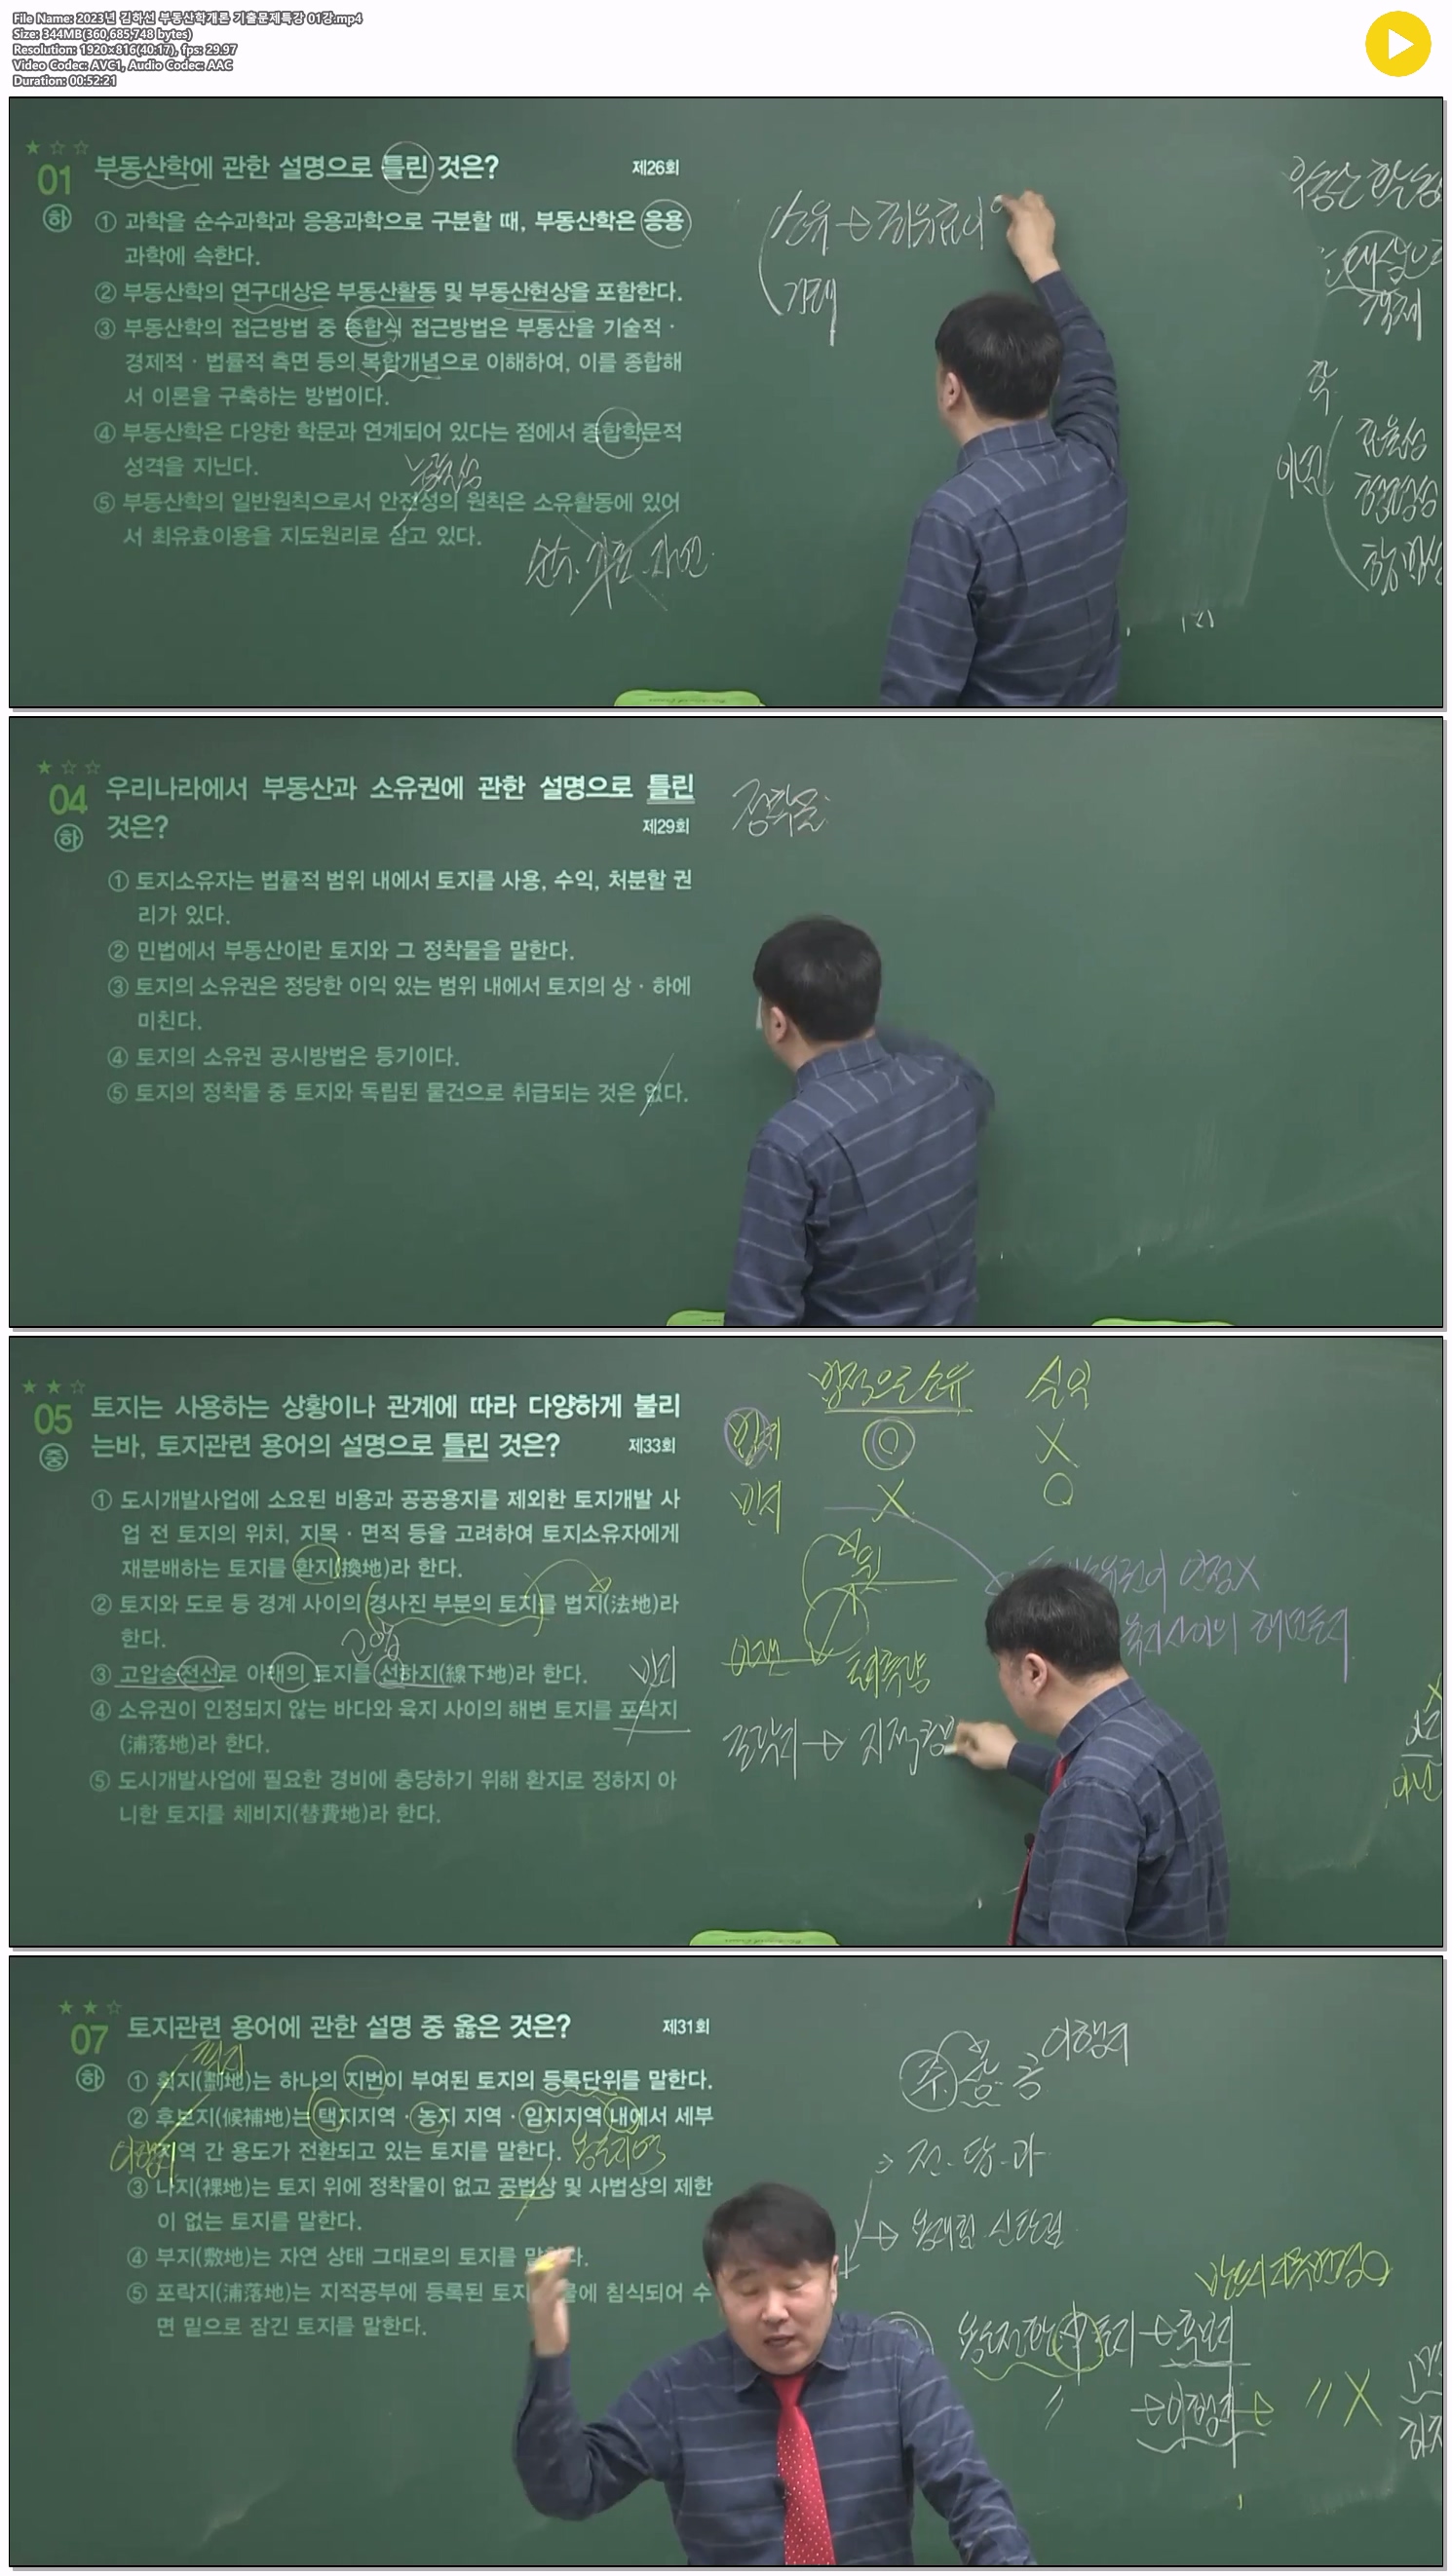 File Name: 2023년 김하선 부동산학개론 기출문제특강 01강.mp4
Size: 344MB(360,685,748 bytes)
Resolution: 1920×816(40:17), fps: 29.97
Video Codec: AVC1, Audio Codec: AAC
Duration: 00:52:21
★☆☆
01
하
부동산학에 관한 설명으로 틀린 것은? 제26회
① 과학을 순수과학과 응용과학으로 구분할 때, 부동산학은 응용
과학에 속한다.
② 부동산학의 연구대상은 부동산활동 및 부동산현상을 포함한다.
③ 부동산학의 접근방법 중 종합식 접근방법은 부동산을 기술적·
경제적·법률적 측면 등의 복합개념으로 이해하여, 이를 종합해
서 이론을 구축하는 방법이다.
④ 부동산학은 다양한 학문과 연계되어 있다는 점에서 종합학문적
성격을 지닌다.
⑤ 부동산학의 일반원칙으로서 안전성의 원칙은 소유활동에 있어
서 최유효이용을 지도원리로 삼고 있다.
능률성
순수. 기초. 자연.
소유 → 최유효이
거래
부동산 학
학
이념
효율성
형평성
합법성
★☆☆
04
하
우리나라에서 부동산과 소유권에 관한 설명으로 틀린
것은? 제29회
① 토지소유자는 법률적 범위 내에서 토지를 사용, 수익, 처분할 권
리가 있다.
② 민법에서 부동산이란 토지와 그 정착물을 말한다.
③ 토지의 소유권은 정당한 이익 있는 범위 내에서 토지의 상·하에
미친다.
④ 토지의 소유권 공시방법은 등기이다.
⑤ 토지의 정착물 중 토지와 독립된 물건으로 취급되는 것은 없다.
정착물:
★★☆
05
중
토지는 사용하는 상황이나 관계에 따라 다양하게 불리
는바, 토지관련 용어의 설명으로 틀린 것은? 제33회
① 도시개발사업에 소요된 비용과 공공용지를 제외한 토지개발 사
업 전 토지의 위치, 지목·면적 등을 고려하여 토지소유자에게
재분배하는 토지를 환지(換地)라 한다.
② 토지와 도로 등 경계 사이의 경사진 부분의 토지를 법지(法地)라
한다.
③ 고압송전선로 아래의 토지를 선하지(線下地)라 한다.
④ 소유권이 인정되지 않는 바다와 육지 사이의 해변 토지를 포락지
(浦落地)라 한다.
⑤ 도시개발사업에 필요한 경비에 충당하기 위해 환지로 정하지 아
니한 토지를 체비지(替費地)라 한다.
고압
빈지
법적으로 소유 실익
법지 ◎ X
빈지 X O
소유권이 인정X
육지사이의 해변토지
포락지 → 지적공
★★☆
07
하
토지관련 용어에 관한 설명 중 옳은 것은? 제31회
① 획지(劃地)는 하나의 지번이 부여된 토지의 등록단위를 말한다.
② 후보지(候補地)는 택지지역·농지 지역·임지지역 내에서 세부
지역 간 용도가 전환되고 있는 토지를 말한다.
③ 나지(裸地)는 토지 위에 정착물이 없고 공법상 및 사법상의 제한
이 없는 토지를 말한다.
④ 부지(敷地)는 자연 상태 그대로의 토지를 말한다.
⑤ 포락지(浦落地)는 지적공부에 등록된 토지 물에 침식되어 수
면 밑으로 잠긴 토지를 말한다.
필지
이행지
용도지역
주 상 공 이행지
→ 전·답·과
→ 용재림 신탄림
용도전환中토지 → 후보지
〃 → 이행지 → 〃X